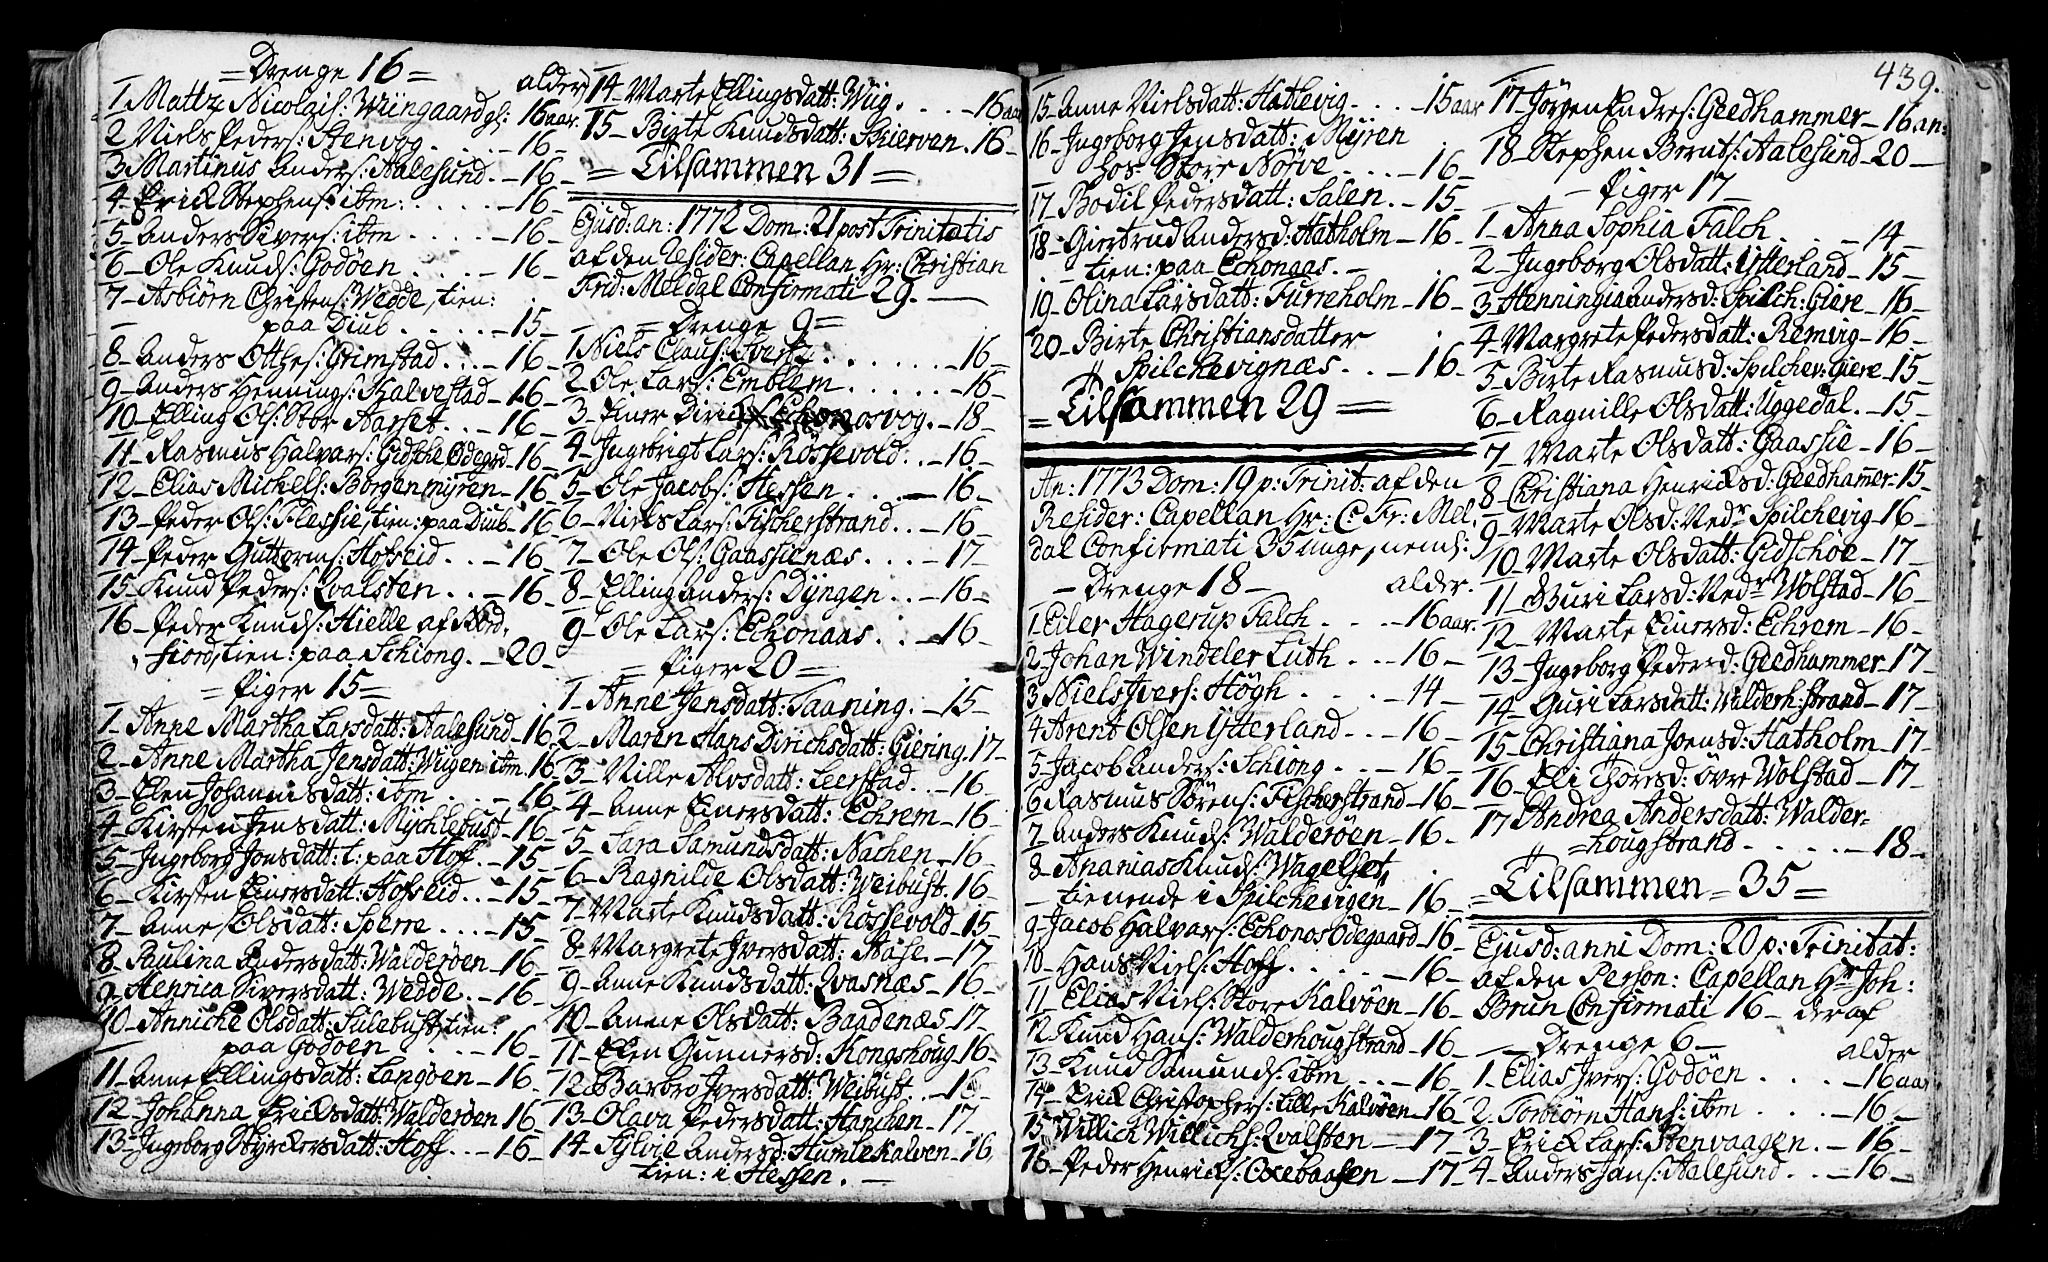 = Drenge 16 =
alder
1 Mattz Nicolais: Wiingaard gl: 16 aar.
2 Niels Peders: Stenvog. - 16 -
3 Martinus Anders: Aalesund. - 16 -
4 - Erick Stephens: ibm: - 16 -
5 - Anders Sivers: ibm - 16 -
6 - Ole Knuds: Godøen - 16 -
7 - Asbiørn Christens: Wedde, tien:
paa Diub - 15 -
8 - Anders Otthes: Grimstad - 16 -
9 - Anders Hennings: Kalvestad - 16 -
10 - Elling Ols: Stor Aarset - 16 -
11 - Rasmus Halvars: Gidsche Ødegrd - 16 -
12 - Elias Mickels: Borgenmyren - 16 -
13 - Peder Ols: Flessie, tien: paa Diub - 16 -
14 - Peder Guttorms: Hofseid - 16 -
15 - Knud Peders: Qvalsten - 16 -
16 - Peder Knuds: Hielle af Nord,
fiord, tien: paa Schiong. - 20 -
= Piger 15 =
1 - Anne Martha Larsdatt: Aalesund - 16
2 - Anne Martha Jensdatt: Wiigen ibm. 16
3 - Elen Johannisdatt: ibm - 16
4 - Kirsten Jensdatt: Mychlebust - 16 -
5 - Jngeborg Jonsdatt: t: paa Hoff - 15 -
6 - Kirsten Einersdatt: Hofseid - 15 -
7 - Anne Olsdatt: Sperre - 15 -
8 - Paulina Andersdatt: Walderøen - 16 -
9 - Henrica Siversdatt: Wedde. - 16 -
10 - Anniche Olsdatt: Sulebust, tien:
paa Godøen - 16 -
11 - Anne Ellingsdatt: Langøen - 16 -
12 - Johanna Ericksdatt: Walderøen 16 -
13 - Jngeborg Styrckersdatt: Hoff - 16 -
14 - Marte Ellingsdatt: Wiig. - 16 aar
15 - Birte Knudsdatt: Schierven. 16 -
= Tilsammen 31 =
Ejusd: an: 1772 Dom: 21 post Trinitatis
af den Resider: Capellan Hr: Christian
Frid: Meldal Confirmati 29. -
= Drenge 9 =
1 Niels Claus: - 16 -
2 Ole Lars: Emblem - 16 -
3 - Einer Dirichs: Echonosvog. - 18 -
4 - Jngebrigt Lars: Røssevold - 16 -
5 - Ole Jacobs: Hessen - 16 -
6 - Niels Lars: Fischerstrand - 16 -
7 - Ole Ols: Gaassienæs - 17 -
8 - Elling Anders: Dyngen - 16 -
9 - Ole Lars: Echonaas - 16 -
= Piger 20 =
1 - Anne Jensdatt: Taaning. - 15 -
2 - Maren Hans Dirichsdatt: Giering. 17 -
3 - Nille Alvsdatt: Leerstad - 16 -
4 - Anne Einersdatt: Echrem - 16 -
5 - Sara Samundsdatt: Nachen - 16 -
6 - Ragnilde Olsdatt: Weibust. 16 -
7 - Marte Knudsdatt: Røssevold 15 -
8 - Margrete Jversdatt: Aase. - 17 -
9 - Anne Knudsdatt: Qvasnæs - 16 -
10 - Anne Olsdatt: Baadenæs - 17 -
11 - Elen Gunnersd: Kongshoug 16 -
12 - Barbro Jversdatt: Weibust - 16 -
13 - Olava Pedersdatt: Hanchen - 17 -
14 - Sylvie Andersd: Humlekalven - 16
tien: i Hessen. -
439.
15 - Anne Nielsdatt: Hatlevig - 15 aar
16 - Jngeborg Jensdatt: Myren
hos Store Nørve - 16 -
17 - Bodil Pedersdatt: Salen. - 15 -
18 - Giertrud Andersd: Hatholm - 16 -
tien: paa Echonaas. -
19 - Olina Larsdatt: Furreholm - 16 -
20 - Birte Christiansdatter
Spilchevignæs - 16 -
= Tilsammen 29 =
An: 1773 Dom: 19 p: Trinit: af den
Resider: Capellan Hr: C: Fr: Mel,
dal Confirmati 35 unge, neml:
- Drenge 18 - alder.
1 - Eiler Hagerup Falch - 16 aar.
2 - Johan Windeler Luth - 16 -
3 Niels Jvers: Høgh - 14 -
4 Arent Olsen Ytterland - 16 -
5 - Jacob Anders: Schiong - 16 -
6 Rasmus Sørens: Fischerstrand - 16 -
7 - Anders Knuds: Walderøen - 16 -
8 - Ananias Knuds: Wagelset,
tienende i Spilchevigen - 16 -
9 - Jacob Halvars: Echonos Ødegaard - 16 -
10 - Hans Niels: Hoff - 16 -
11 - Elias Niels: Store Kalvøen - 16 -
12 Knud Hans: Walderhougstrand - 16 -
13 - Knud Samunds: ibm - 16 -
14 - Erick Christophers: Lille Kalvøen - 16
15 - Willich Willichs: Qvalsten - 17 -
16 - Peder Henricks: Oxebaasen - 17 -
17 - Jørgen Endres: Geedhammer - 16 an:
18 - Stephen Bernts: Aalesund - 20 -
- Piger 17 -
1 - Anna Sophia Falch - 14 -
2 - Jngeborg Olsdatt: Ytterland - 15 -
3 - Henningia Andersd: Spilch: Giere - 16 -
4 - Margrete Pedersdatt: Remvig - 16 -
5 - Birte Rasmusd: Spilchev: Giere - 15 -
6 - Ragnille Olsdatt: Uggedal. - 15 -
7 - Marte Olsdatt: Gaassie - 16 -
8 - Christiana Henricksd: Geedhammer - 15
9 - Marte Olsd: Nedr Spilchevig - 16 -
10 - Marte Olsdatt: Gidschøe - 17 -
11 - Guri Larsd: Nedr Wolstad - 16 -
12 - Marte Einersd: Echrem - 16 -
13 - Jngeborg Pedersd: Geedhammer - 17 -
14 - Guri Larsdatt: Walderh: strand - 17 -
15 - Christiana Joensd: Hatholm - 17 -
16 - Eli Thoresd: øvre Wolstad - 17 -
17 Andrea Andersdatt: Walder-
= hougstrand - 18 -
= Tilsammen = 35 =
Ejusd: anni Dom: 20 p: Trinitat:
af den Person: Capellan Hr Joh:
Brun Confirmati 16 - deraf
- Drenge 6 - alder
1 - Elias Jvers: Godøen - 16 aar
2 - Torbiørn Hans: ibm - 16 -
3 - Erick Lars: Stenvaagen - 16 -
4 - Anders Jans: Aalesund - 16 -